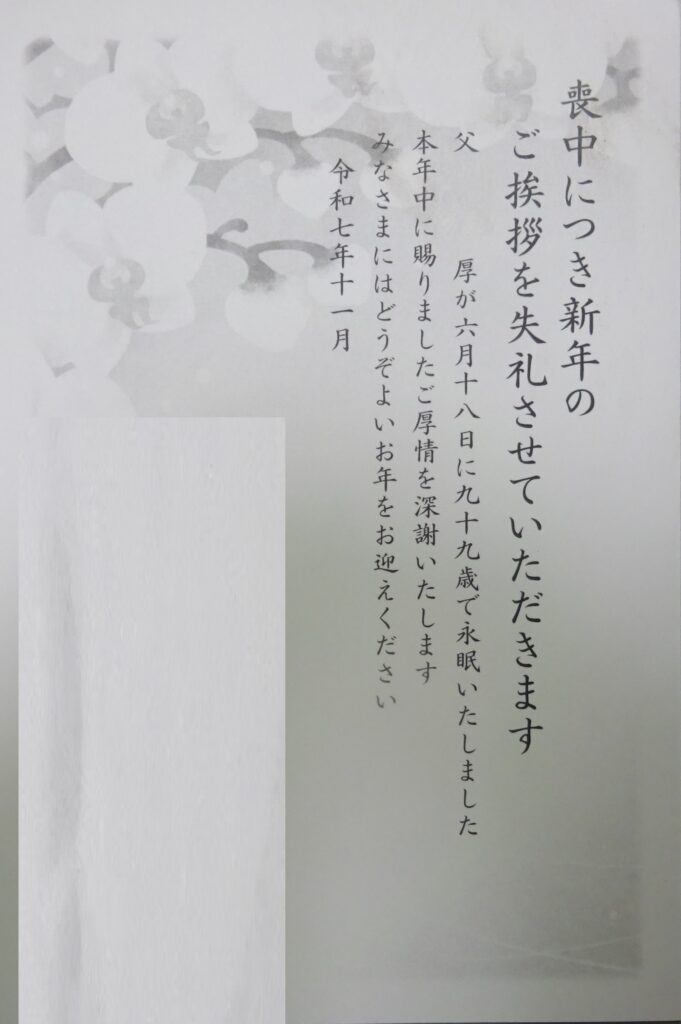 喪中につき新年の
ご挨拶を失礼させていただきます
父　厚が六月十八日に九十九歳で永眠いたしました
本年中に賜りましたご厚情を深謝いたします
みなさまにはどうぞよいお年をお迎えください
令和七年十一月